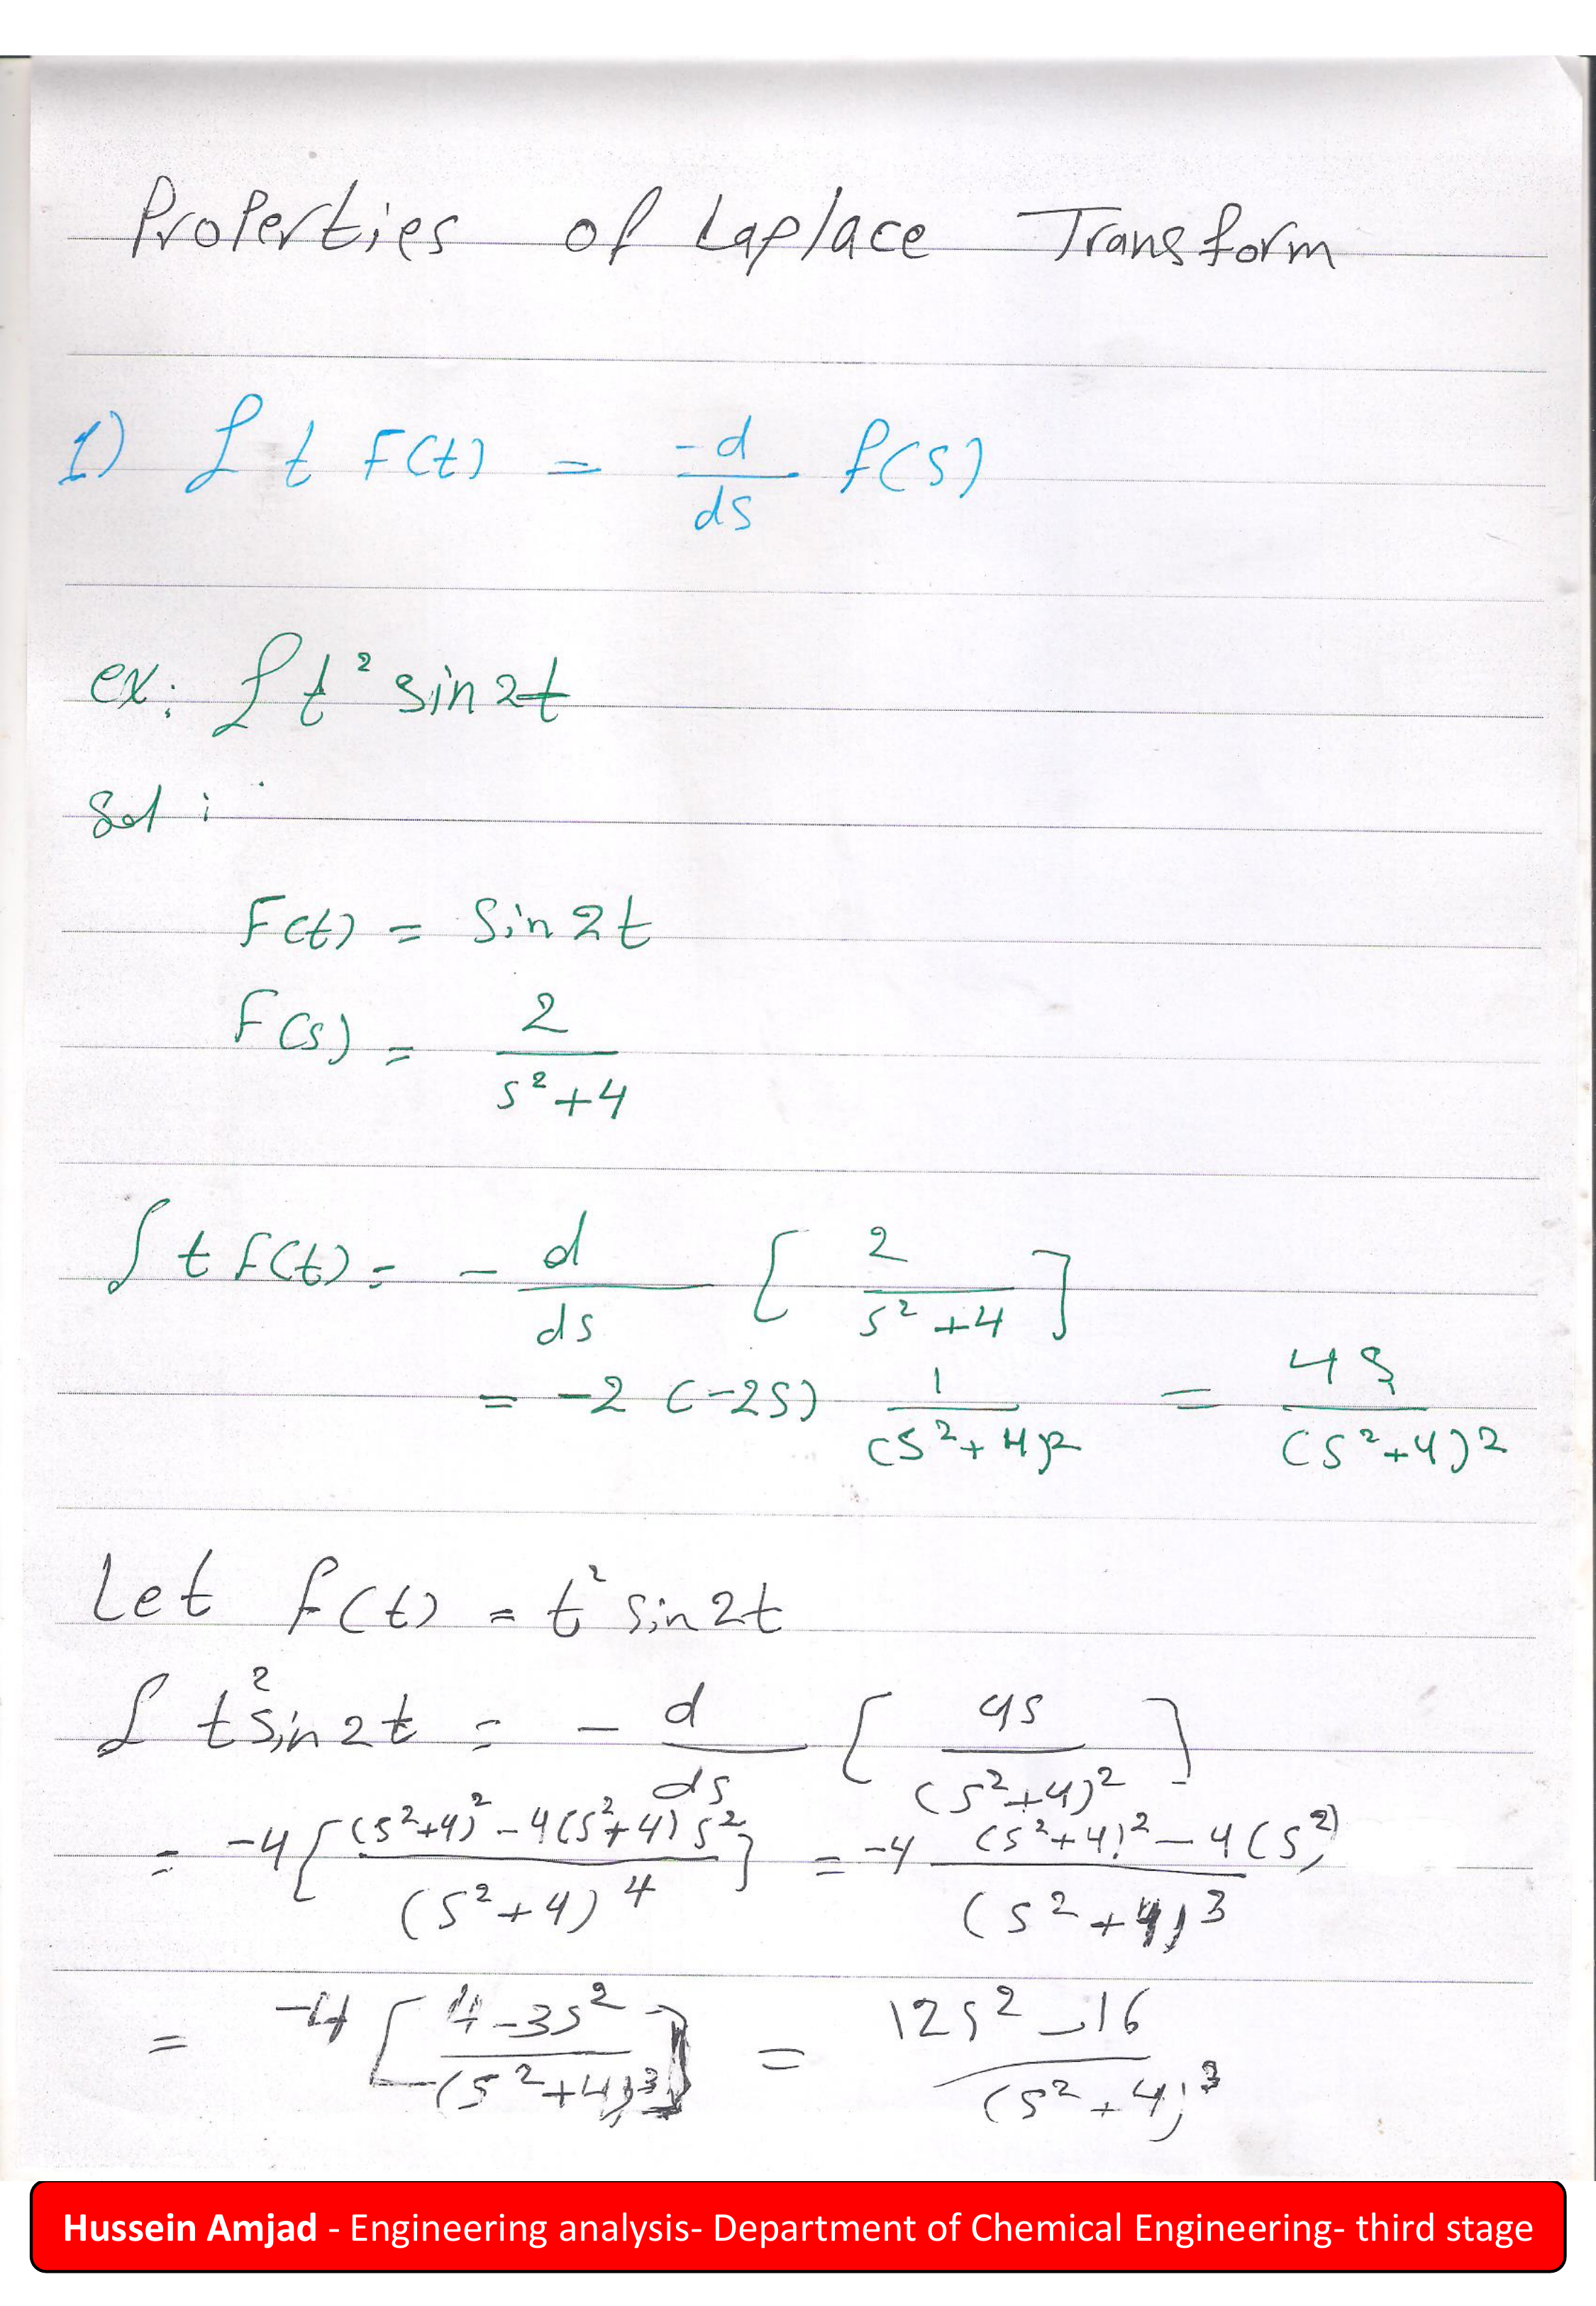 Properties of Laplace Transform
1) ℒ t F(t) = -d/ds f(s)
ex: ℒ t² sin2t
Sol:
F(t) = Sin2t
F(s) = 2/(s²+4)
∫ t f(t) = - d/ds [ 2/(s²+4) ]
= -2 (-2s) 1/(s²+4)² = 4s/(s²+4)²
Let f(t) = t² sin2t
ℒ t² sin2t = - d/ds [ 4s/(s²+4)² ]
= -4 [ ((s²+4)² - 4(s²+4) s²)/(s²+4)⁴ ] = -4 ((s²+4)² - 4(s²))/(s²+4)³
= -4 [ (4-3s²)/(s²+4)³ ] = (12s² - 16)/(s²+4)³
Hussein Amjad - Engineering analysis- Department of Chemical Engineering- third stage